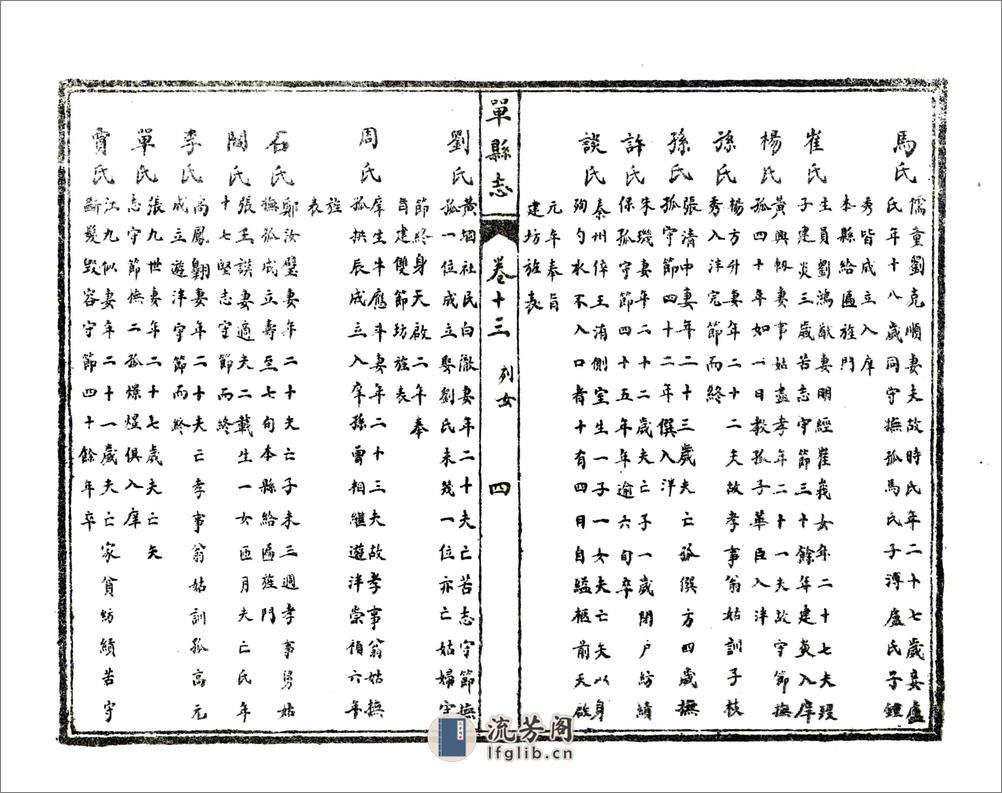 馬氏 儒童劉克順妻夫故時氏年二十七歲妾盧
氏年十八歲同守撫孤馬氏子溥盧氏子鍾
秀皆成立入庠
本縣給匾旌門
崔氏 生員劉鴻猷妻明經崔義女年二十七夫歿
子建炎三歲苦志守節三十餘年建炎入庠
楊氏 黃興妻事姑盡孝年二十一夫故守節撫
孤四十年如一日教孤子華臣入泮
孫氏 楊方升妻年二十二夫故孝事翁姑訓子枝
秀入泮完節而終
孫氏 張清中妻年二十三歲夫亡孤僎方四歲撫
孤守節四十二年僎入泮
許氏 朱璣妻年二十二歲夫亡子一歲閉戶紡績
保孤守節四十五年年逾六旬卒
談氏 秦州倅王淯側室生一子一女夫亡矢以身
殉勺水不入口者十有四日自縊柩前天啟
元年奉旨
建坊旌表
單縣志 卷十三 列女 四
劉氏 黃堌社民白澂妻年二十夫亡苦志守節撫
孤一位成立娶劉氏未幾一位亦亡姑婦守
節終身天啟二年奉
旨建雙節坊旌表
周氏 庠生牛應斗妻年二十三夫故孝事翁姑撫
孤拱辰成立入庠孫曾相繼遊泮崇禎六年
旌
表
石氏 鄭汝璧妻年二十夫亡子未三週孝事舅姑
撫孤成立壽至七旬本縣給匾旌門
閻氏 張王謨妻適夫二載生一女匝月夫亡氏年
十七堅志守節而終
李氏 高鳳翺妻年二十夫亡孝事翁姑訓孤高元
成立遊泮守節而終
單氏 張九世妻年二十七歲夫亡矢
志守節撫二孤燦熀俱入庠
賈氏 江九似妻年二十一歲夫亡家貧紡績苦守
斷髮毀容守節四十餘年卒
流芳阁
lfglib.cn